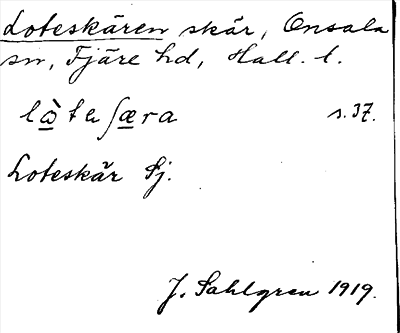 Loteskären skär, Onsala
sn, Fjäre hd, Hall. l.
lò̱teʃæ̱ra s. 37.
Loteskär Sj.
J. Sahlgren 1919.